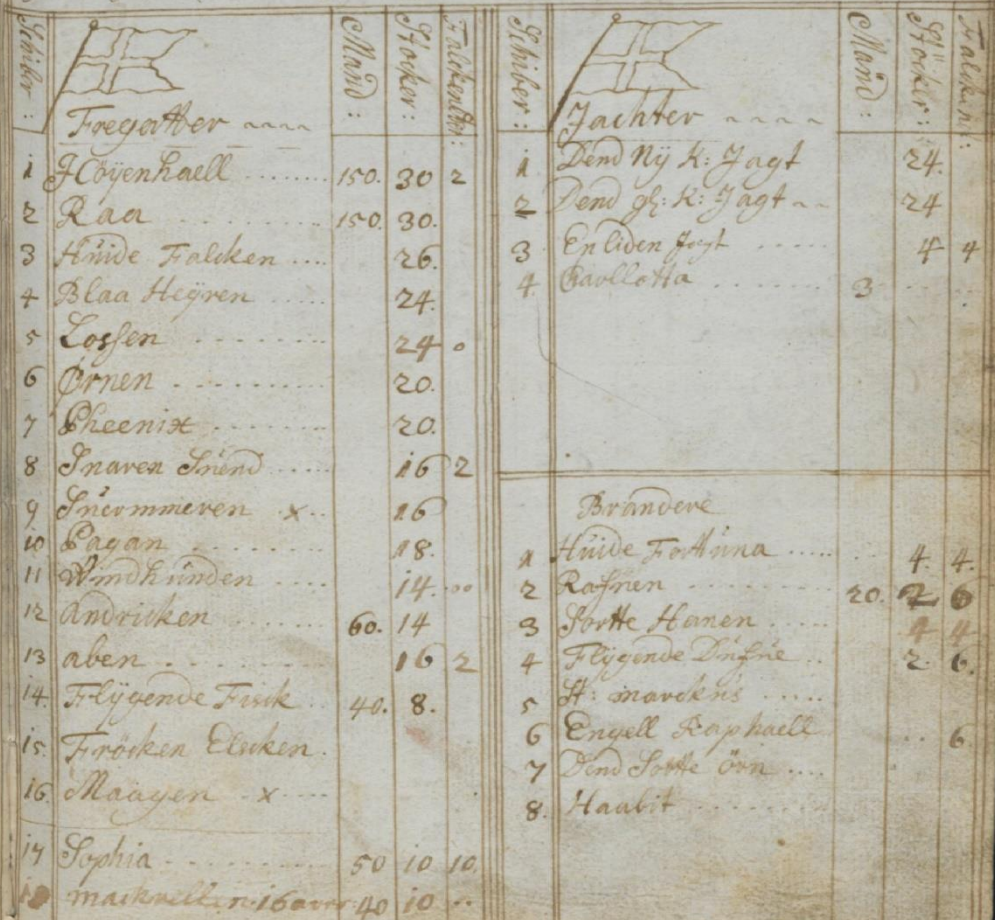 Schiber: Fregatter Mand: Stöcker: Falckenither:
1 Höyenhaell 150. 30 2
2 Raa 150. 30.
3 Huide Falcken 26.
4 Blaa Heÿren 24.
5 Lossen 24
6 Ørnen 20.
7 Pheenix 20.
8 Snaren Suend 16 2
9 Suermmeren x 16
10 Pagan 18.
11 Windhunden 14.
12 Andricken 60. 14
13 aben 16 2
14. Flÿgende Fisck 40. 8.
15 Fröcken Elscken.
16. Maagen x
17 Sophia 50 10 10
18 mackrellen 16 40 10
Schiber: Jachter Mand: Stöcker:
1 Dend Nÿ K: Jagt 24.
2 Dend gl: K: Jagt 24
3 En liden Jagt 4 4
4. Carllotta 3
Brandere
1 Huide Fortuna 4. 4.
2 Rafnen 20. 2 6
3 Sortte Hanen 4 4
4 Flÿgende Dufue 2. 6.
5 St: marckus
6 Engell Raphaell 6
7 Dend Sortte örn
8. Haabit